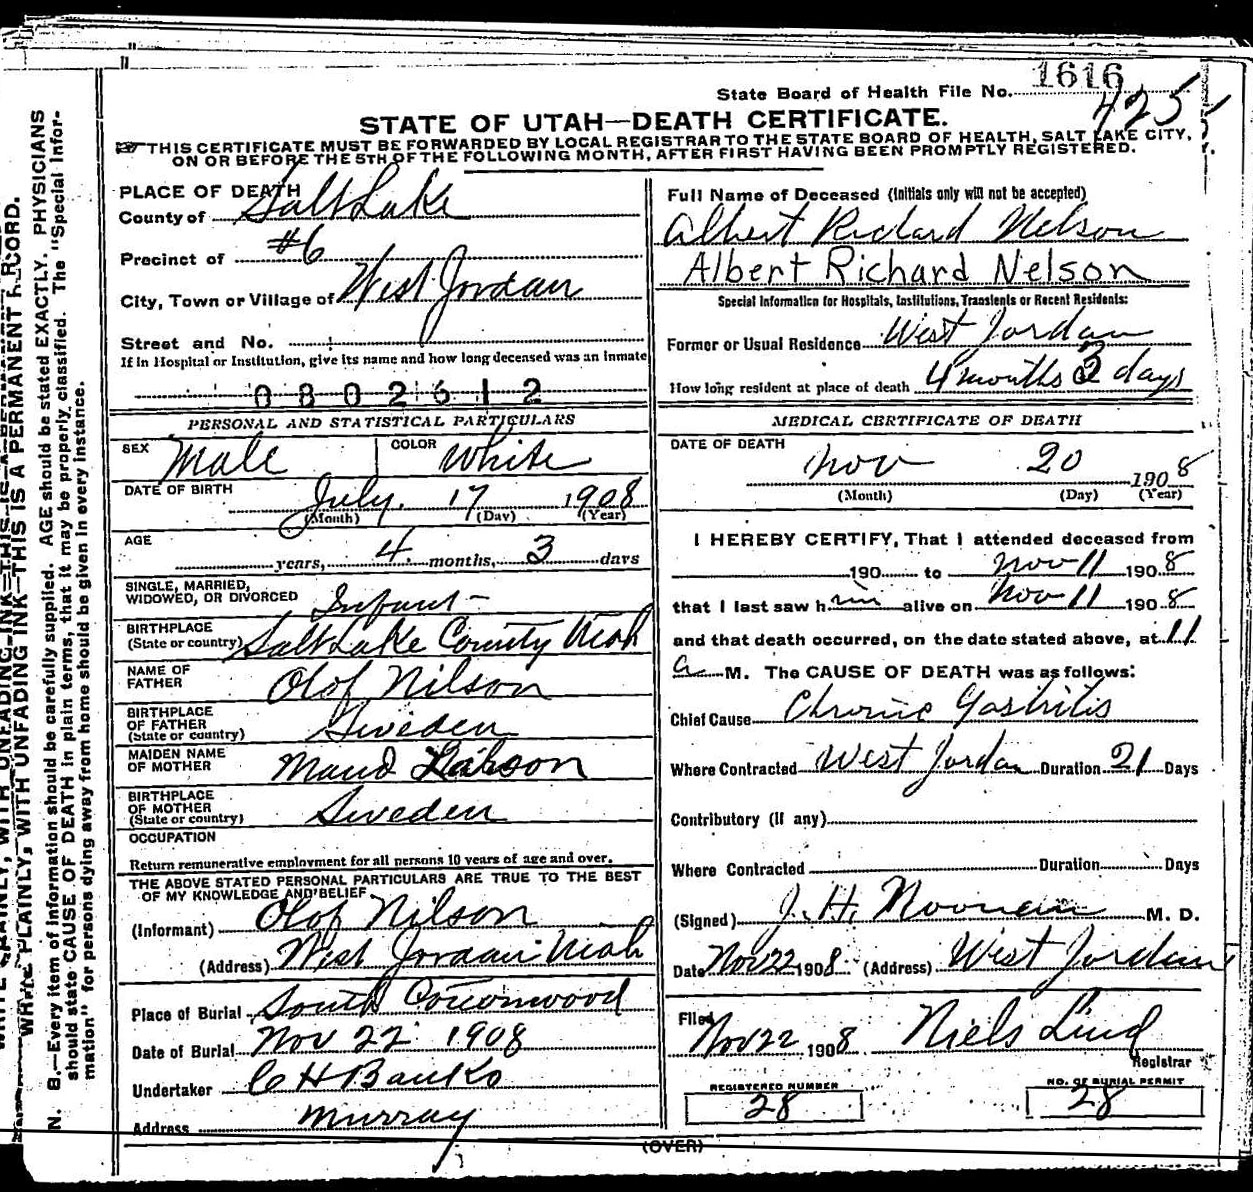 State Board of Health File No. 1616
425
STATE OF UTAH—DEATH CERTIFICATE.
THIS CERTIFICATE MUST BE FORWARDED BY LOCAL REGISTRAR TO THE STATE BOARD OF HEALTH, SALT LAKE CITY,
ON OR BEFORE THE 5TH OF THE FOLLOWING MONTH, AFTER FIRST HAVING BEEN PROMPTLY REGISTERED.
PLACE OF DEATH
County of Salt Lake
Precinct of #6
City, Town or Village of West Jordan
Street and No.
If in Hospital or Institution, give its name and how long deceased was an inmate
0802612
PERSONAL AND STATISTICAL PARTICULARS
SEX Male COLOR White
DATE OF BIRTH July. 17 1908
(Month) (Day) (Year)
AGE
years, 4 months, 3 days
SINGLE, MARRIED,
WIDOWED, OR DIVORCED Infant
BIRTHPLACE
(State or country) Salt Lake County Utah
NAME OF
FATHER Olof Nilson
BIRTHPLACE
OF FATHER
(State or country) Sweden
MAIDEN NAME
OF MOTHER Maud
BIRTHPLACE
OF MOTHER
(State or country) Sweden
OCCUPATION
Return remunerative employment for all persons 10 years of age and over.
THE ABOVE STATED PERSONAL PARTICULARS ARE TRUE TO THE BEST
OF MY KNOWLEDGE AND BELIEF
(Informant) Olof Nilson
(Address) West Jordan Utah
Place of Burial South Cottonwood
Date of Burial Nov 22 1908
Undertaker C H Banks
Address Murray
Full Name of Deceased (Initials only will not be accepted)
Albert Richard Nelson
Albert Richard Nelson
Special Information for Hospitals, Institutions, Transients or Recent Residents:
Former or Usual Residence West Jordan
How long resident at place of death 4 months 3 days
MEDICAL CERTIFICATE OF DEATH
DATE OF DEATH
Nov 20 1908
(Month) (Day) (Year)
I HEREBY CERTIFY, That I attended deceased from
190 to Nov 11 1908
that I last saw him alive on Nov 11 1908
and that death occurred, on the date stated above, at 11
a M. The CAUSE OF DEATH was as follows:
Chief Cause Chronic Gastritis
Where Contracted West Jordan Duration 21 Days
Contributory (if any)
Where Contracted Duration Days
(Signed) J. H. M. D.
Date Nov 22 1908 (Address) West Jordan
Filed Nov 22 1908 Niels Lind
Registrar
REGISTERED NUMBER
28
NO. OF BURIAL PERMIT
28
(OVER)
WRITE PLAINLY, WITH UNFADING INK—THIS IS A PERMANENT RECORD.
N. B.—Every item of information should be carefully supplied. AGE should be stated EXACTLY. PHYSICIANS
should state CAUSE OF DEATH in plain terms, that it may be properly classified. The "Special Infor-
mation" for persons dying away from home should be given in every instance.